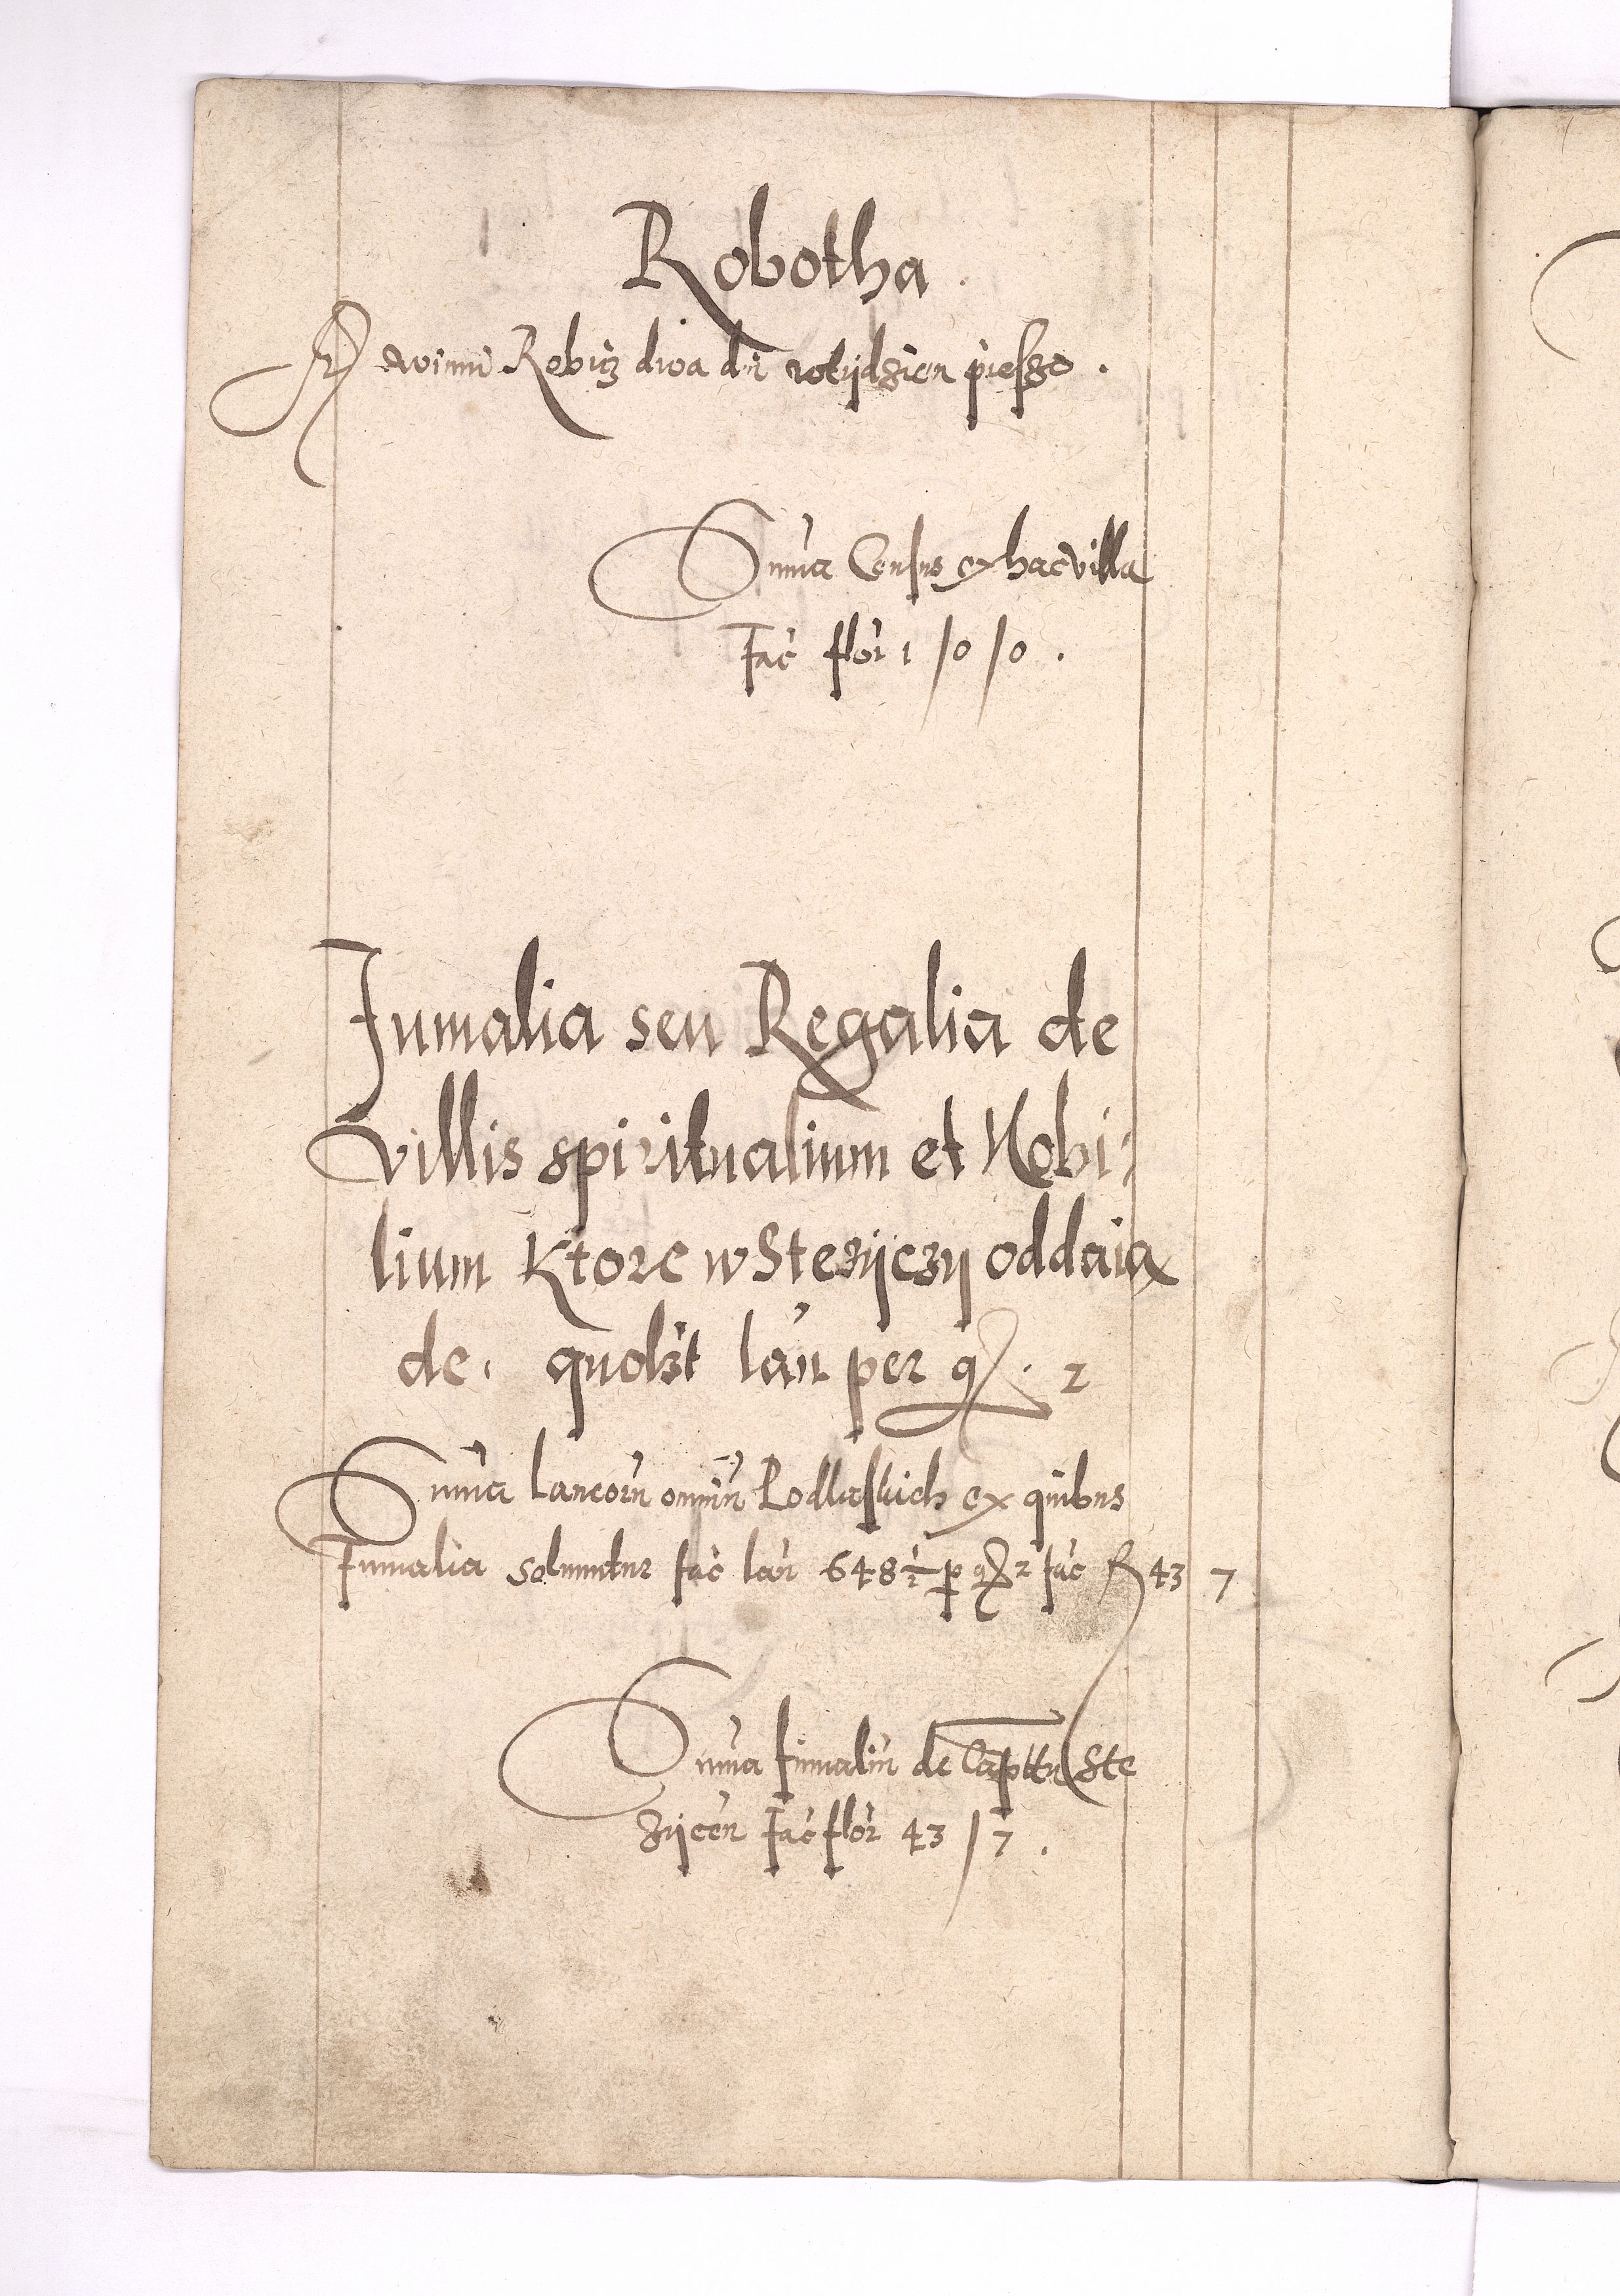 Robotha
powinni Robicz dwa dni wtijdzien pieszo.
Summa Census ex hac villa
fac flor 1/0/0.
Fumalia seu Regalia de
villis spiritualium et Nobi:
lium Ktore wStezijczij oddaia
de quolzt lan per gr. 2
Suma laneoru omniu Podlaskich ex quibus
Fumalia soluuntur fac lan 648½ p gr 2 fac fl 43 7
Suma fumaliu de Capttu Ste
zijcen fac flor 43/7.